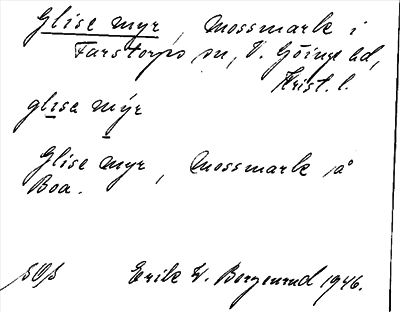 Glise myr, Mossmark i
Farstorps sn, V. Göinge hd,
Krist. l.
glise mýr
Glise myr, Mossmark på
Boa.
Erik W. Borgenrud 1946.